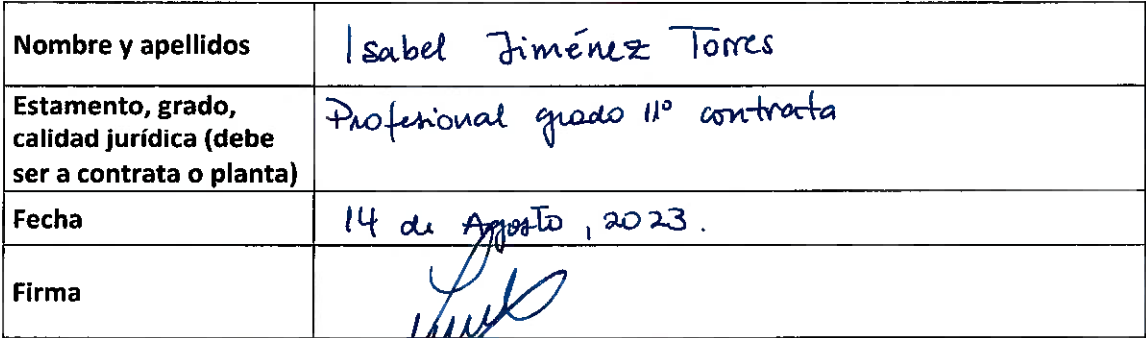 Nombre y apellidos
Isabel Jiménez Torres
Estamento, grado,
calidad jurídica (debe
ser a contrata o planta)
Profesional grado 11° contrata
Fecha
14 de Agosto, 2023.
Firma